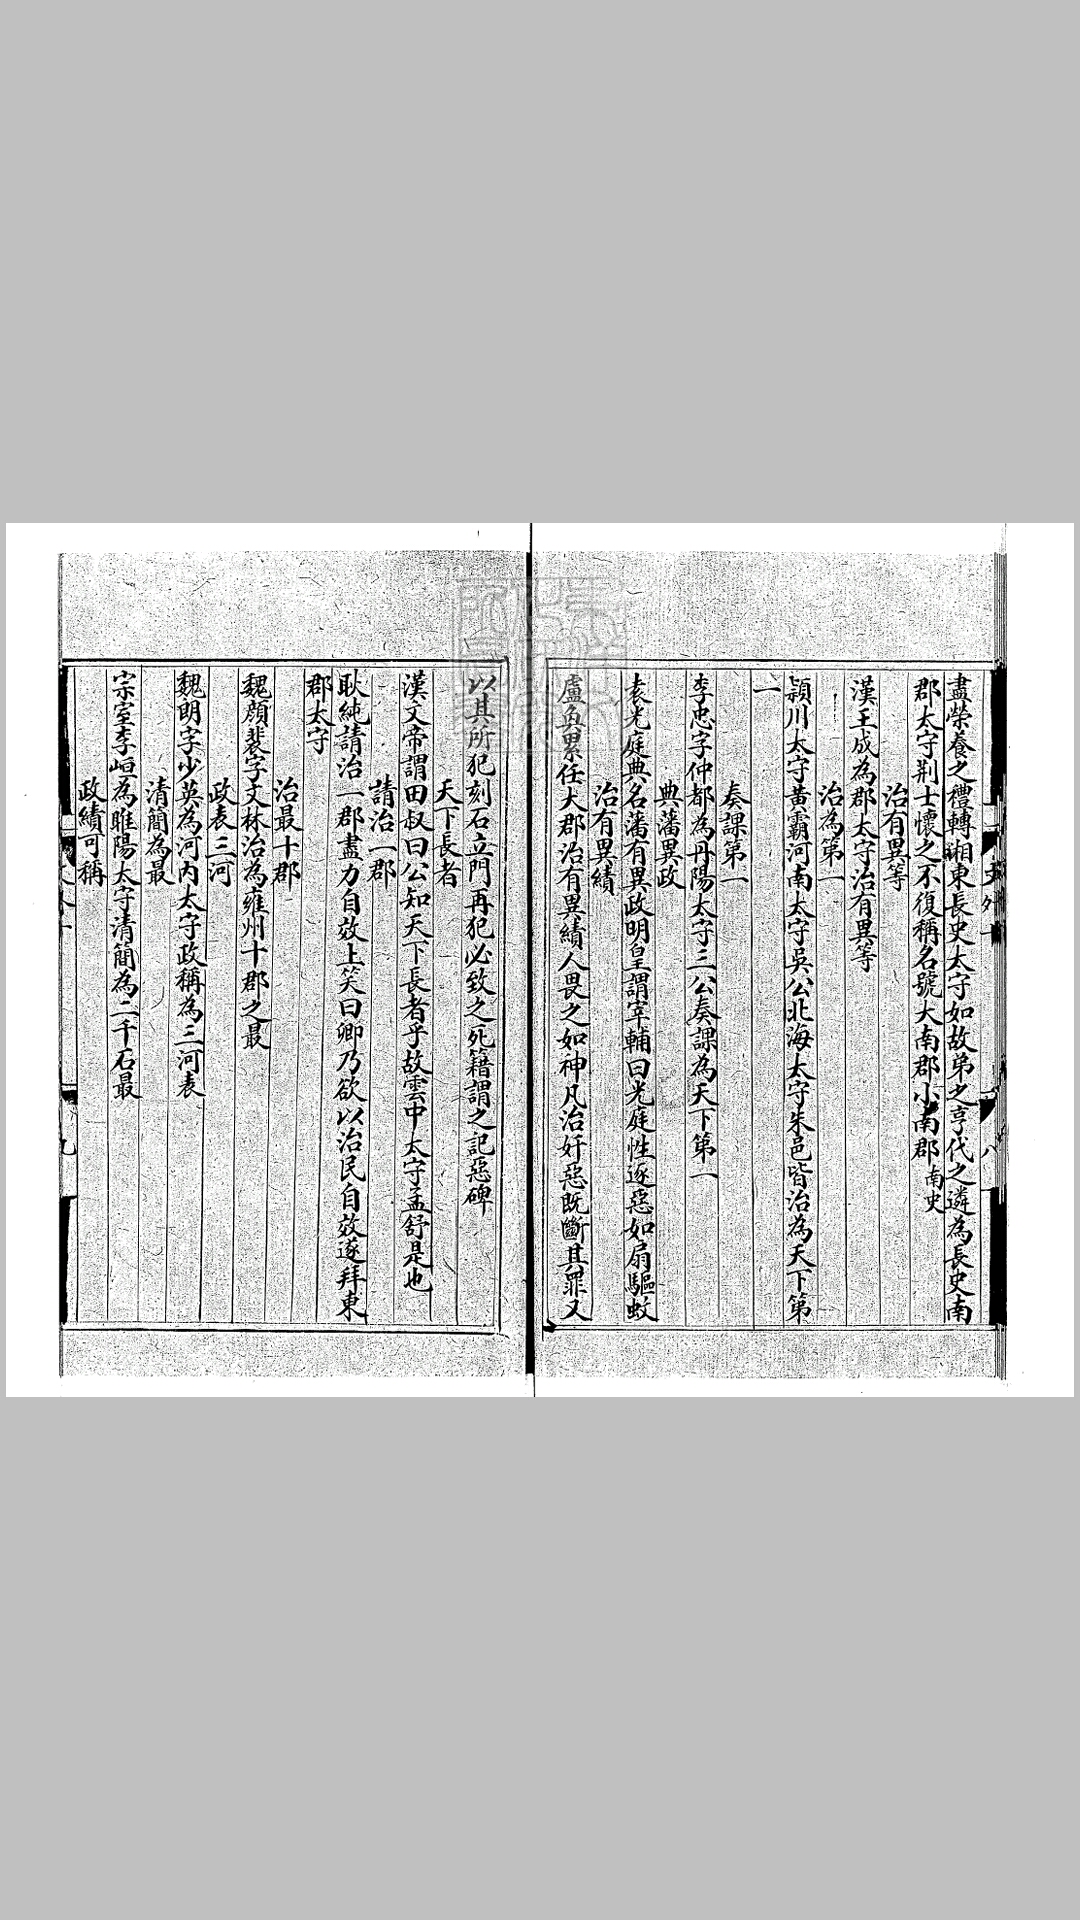 盡榮養之禮轉湘東長史太守如故弟之亨代之遴為長史南
郡太守荆士懷之不復稱名號大南郡小南郡南史
治有異等
漢王成為郡太守治有異等
治為第一
頴川太守黃霸河南太守吳公北海太守朱邑皆治為天下第
一
奏課第一
李忠字仲都為丹陽太守三公奏課為天下第一
典藩異政
袁光庭典名藩有異政明皇謂宰輔曰光庭性逐惡如扇驅蚊
治有異績
盧奐累任大郡治有異績人畏之如神凡治奸惡既斷其罪又
以其所犯刻石立門再犯必致之死籍謂之記惡碑
天下長者
漢文帝謂田叔曰公知天下長者乎故雲中太守孟舒是也
請治一郡
耿純請治一郡盡力自效上笑曰卿乃欲以治民自效遂拜東
郡太守
治最十郡
魏顏裴字文林治為雍州十郡之最
政表三河
魏朗字少英為河內太守政稱為三河表
清簡為最
宗室李峘為睢陽太守清簡為二千石最
政績可稱